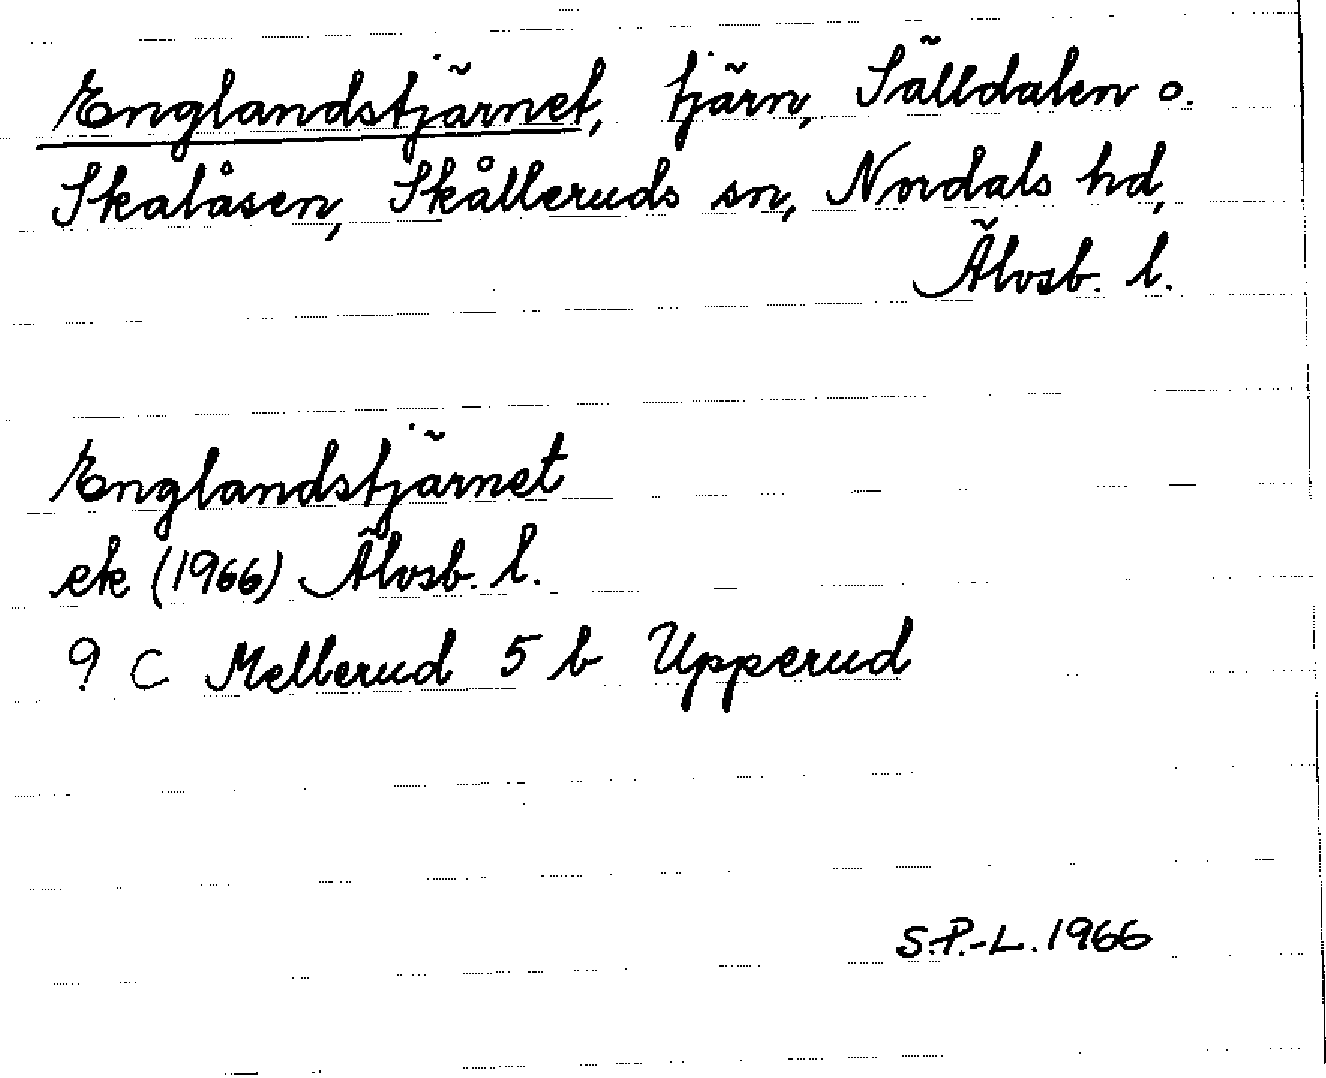 Englandstjärnet, tjärn, Sälldalen o.
Skalåsen, Skålleruds sn, Nordals hd,
Älvsb. l.
Englandstjärnet
ek (1966) Älvsb. l.
9 C Mellerud 5 b Upperud
S.P.-L. 1966